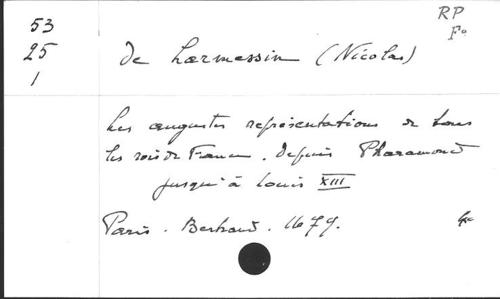 53
25
1
RP
F°
de Larmessin (Nicolas)
Les augustes représentations de tous
les rois de France. depuis Pharamond
jusqu'à Louis XIII
Paris. Bertrand. 1679.